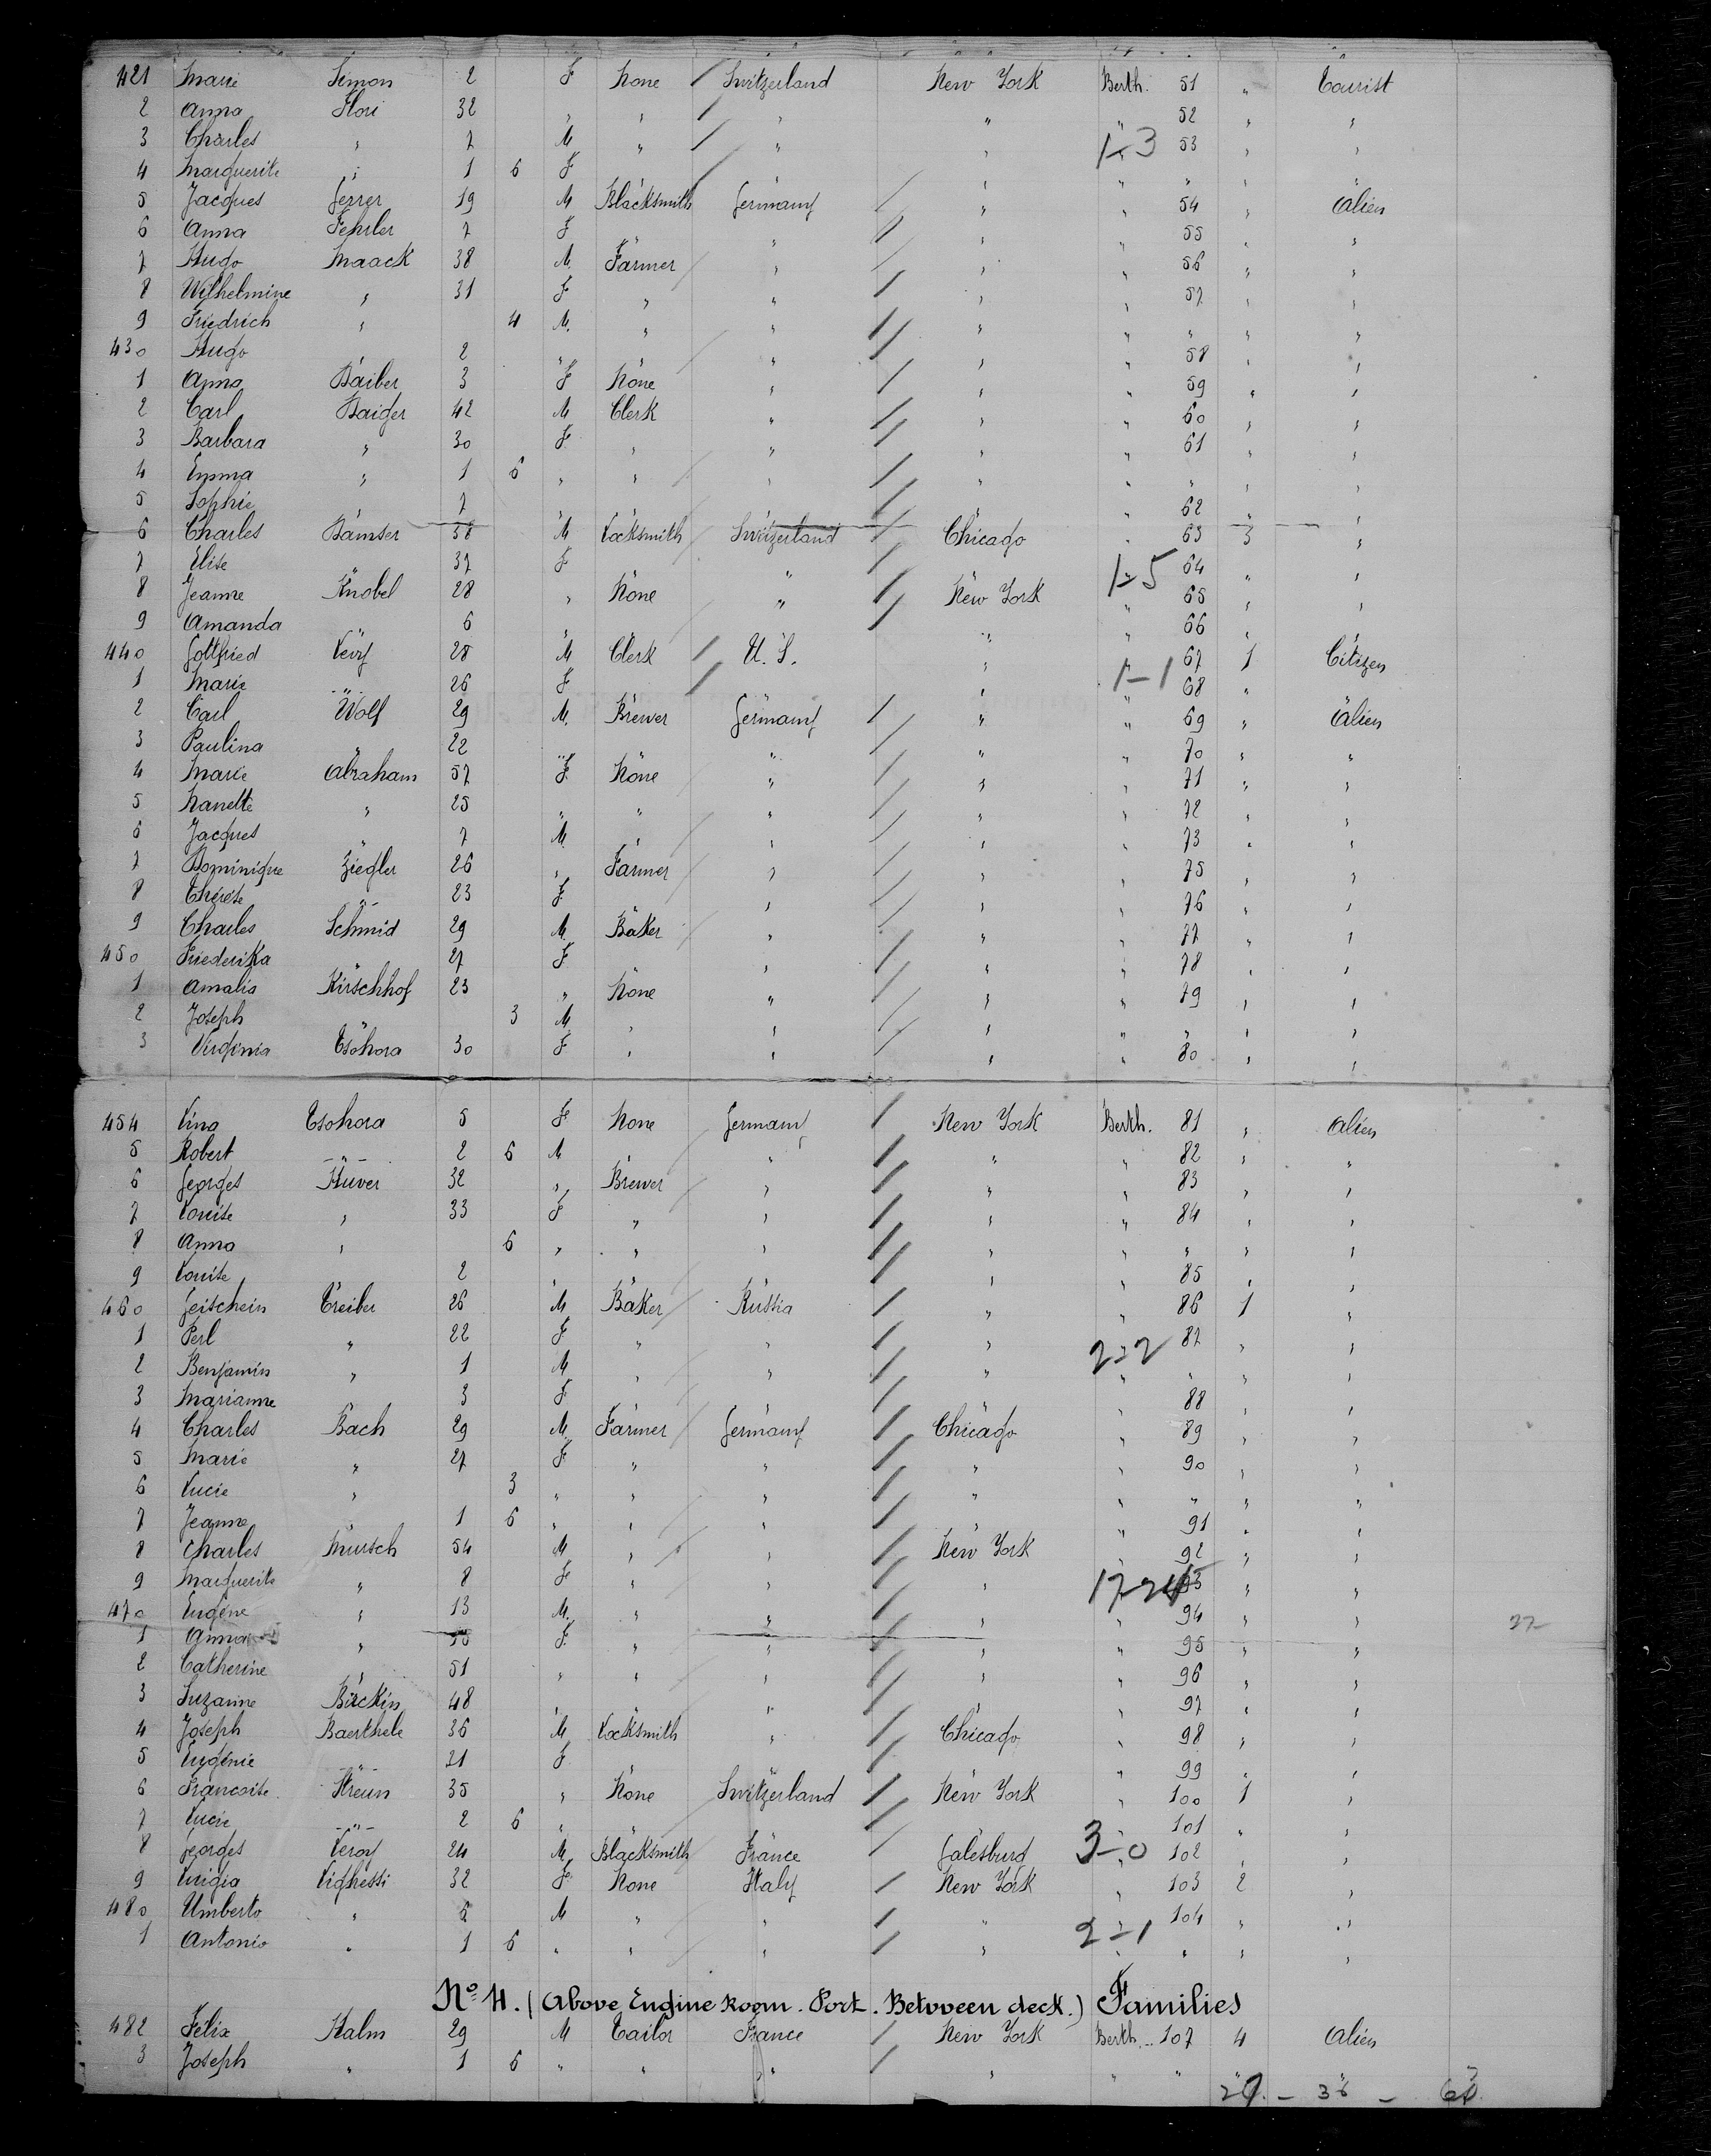 421 Marie Simon 2 F None / Switzerland New York Berth. 51 " Tourist
2 Anna Flori 32 " " / " " " 52 " "
3 Charles " 7 M " / " " " 53 " "
1-3
4 Marguerite " 1 6 F / " " " " "
5 Jacques 19 M Blacksmith Germany / " " 54 " Alien
6 Anna Fehrler 7 F " " / " " 55 " "
7 Hugo Maack 38 M. Farmer " / " " 56 " "
8 Wilhelmine " 31 F " " / " " 57 " "
9 Friedrich " 4 M. " " / " " " " "
430 Hugo " 2 " " " / " " 58 " "
1 Anna Baiber 3 F None " / " " 59 " "
2 Carl Baiger 42 M Clerk " / " " 60 " "
3 Barbara " 30 F " " / " " 61 " "
4 Emma " 1 6 " " " / " " " " "
5 Sophie " 7 " " " / " " 62 " "
6 Charles Bamser 38 M Locksmith Switzerland / Chicago " 63 3 "
7 Elise " 37 F " " / " " 64 " "
1-5
8 Jeanne Knobel 28 " None " / New York " 65 " "
9 Amanda " 6 " " " / " " 66 " "
440 Gottfried Levy 28 M Clerk / U. S. " " 67 1 Citizen
1 Marie " 26 F " / " " " 68 " "
1-1
2 Carl Wolf 29 M. Brewer Germany / " " 69 " Alien
3 Paulina " 22 " " " / " " 70 " "
4 Marie Abraham 57 F None " / " " 71 " "
5 Nanette " 25 " " " / " " 72 " "
6 Jacques " 7 M. " " / " " 73 " "
7 Dominique Ziegler 26 " Farmer " / " " 75 " "
8 Thérèse " 23 F " " / " " 76 " "
9 Charles Schmid 29 M. Baker " / " " 77 " "
450 Friederika " 27 F " " / " " 78 " "
1 Amalia Kirschhof 23 " None " / " " 79 " "
2 Joseph " 3 M. " " / " " " " "
3 Virginia Tsohora 30 F " " / " " 80 " "
454 Lina Tsohora 5 F None Germany / New York Berth. 81 " Alien
5 Robert " 2 6 M " " / " " 82 " "
6 Georges Huver 32 " Brewer " / " " 83 " "
7 Louise " 33 F " " / " " 84 " "
8 Anna " 6 " " " / " " " " "
9 Louise " 2 " " " / " " 85 " "
460 Geischein Treiber 26 M Baker Russia / " " 86 1 "
1 Perl " 22 F " " / " " 87 " "
2-2
2 Benjamin " 1 M " " / " " " " "
3 Marianne " 3 F " " / " " 88 " "
4 Charles Bach 29 M. Farmer Germany / Chicago " 89 " "
5 Marie " 27 F " " / " " 90 " "
6 Lucie " 3 " " " / " " " " "
7 Jeanne " 1 6 " " " / " " 91 " "
8 Charles Mursch 54 M " " / New York " 92 " "
9 Marguerite " 8 F " " / " " 93 " "
470 Eugène " 13 M. " " / " " 94 " "
1 Anna " F. " " / " " 95 " "
2 Catherine " 51 " " " / " " 96 " "
3 Suzanne Birckin 48 " " " / " " 97 " "
4 Joseph Baerthele 36 M Locksmith " / Chicago " 98 " "
5 Eugénie " 31 F " " / " " 99 " "
6 Francoise Streun 35 " None Switzerland / New York " 100 1 "
7 Lucie " 2 6 " " " / " " 101 " "
8 Georges Leroy 24 M Blacksmith France / Galesburg " 102 " "
3-0
9 Luigia Vighessi 32 F None Italy / New York " 103 2 "
480 Umberto " 6 M " " / " " 104 " "
2-1
1 Antonio " 1 6 " " " / " " " " "
No 4. (Above Engine Room. Port. Between deck.) Families
482 Félix Halm 29 M Tailor France / New York Berth. 107 4 Alien
3 Joseph " 1 6 " " " / " " " " "
29. - 36 -